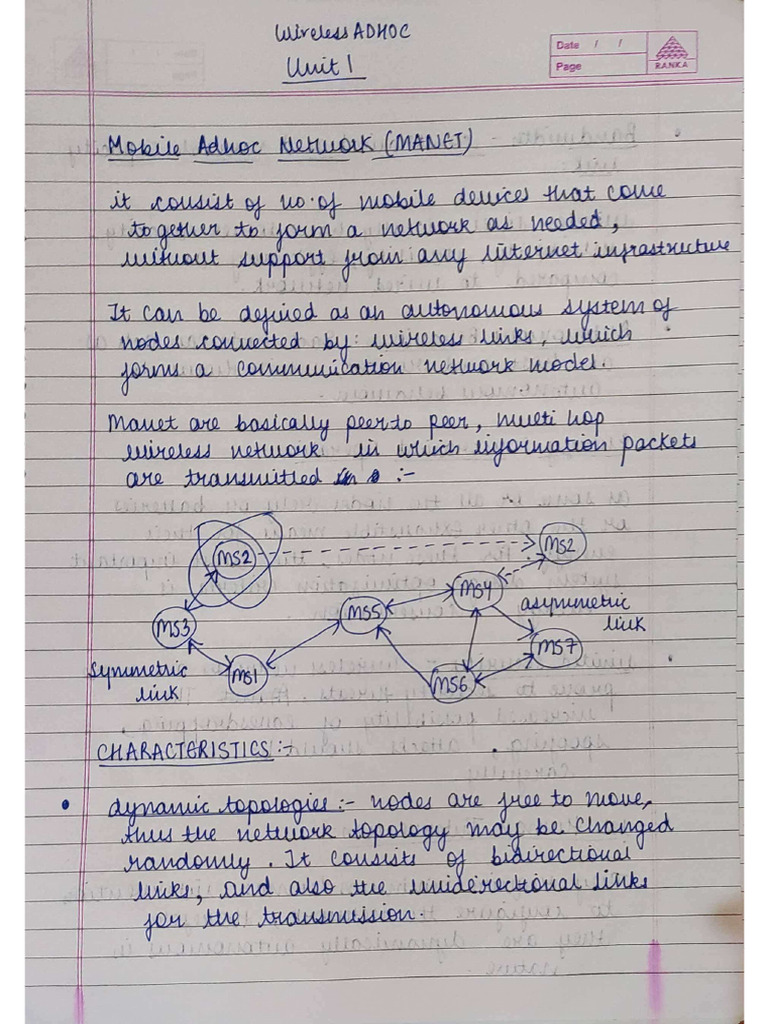 Wireless ADHOC
Unit 1
Date / /
Page
RANKA
Mobile Adhoc Network (MANET)
it consist of no. of mobile devices that come
together to form a network as needed,
without support from any internet infrastructure
It can be defined as an autonomous system of
nodes connected by wireless links, which
forms a communication network model.
Manet are basically peer to peer, multi hop
wireless network in which information packets
are transmitted :-
MS2
MS2
MS4
asymmetric
link
MS5
MS3
MS7
Symmetric
link
MS1
MS6
CHARACTERISTICS :-
• dynamic topologies :- nodes are free to move,
thus the network topology may be changed
randomly. It consists of bidirectional
links, and also the unidirectional links
for the transmission.